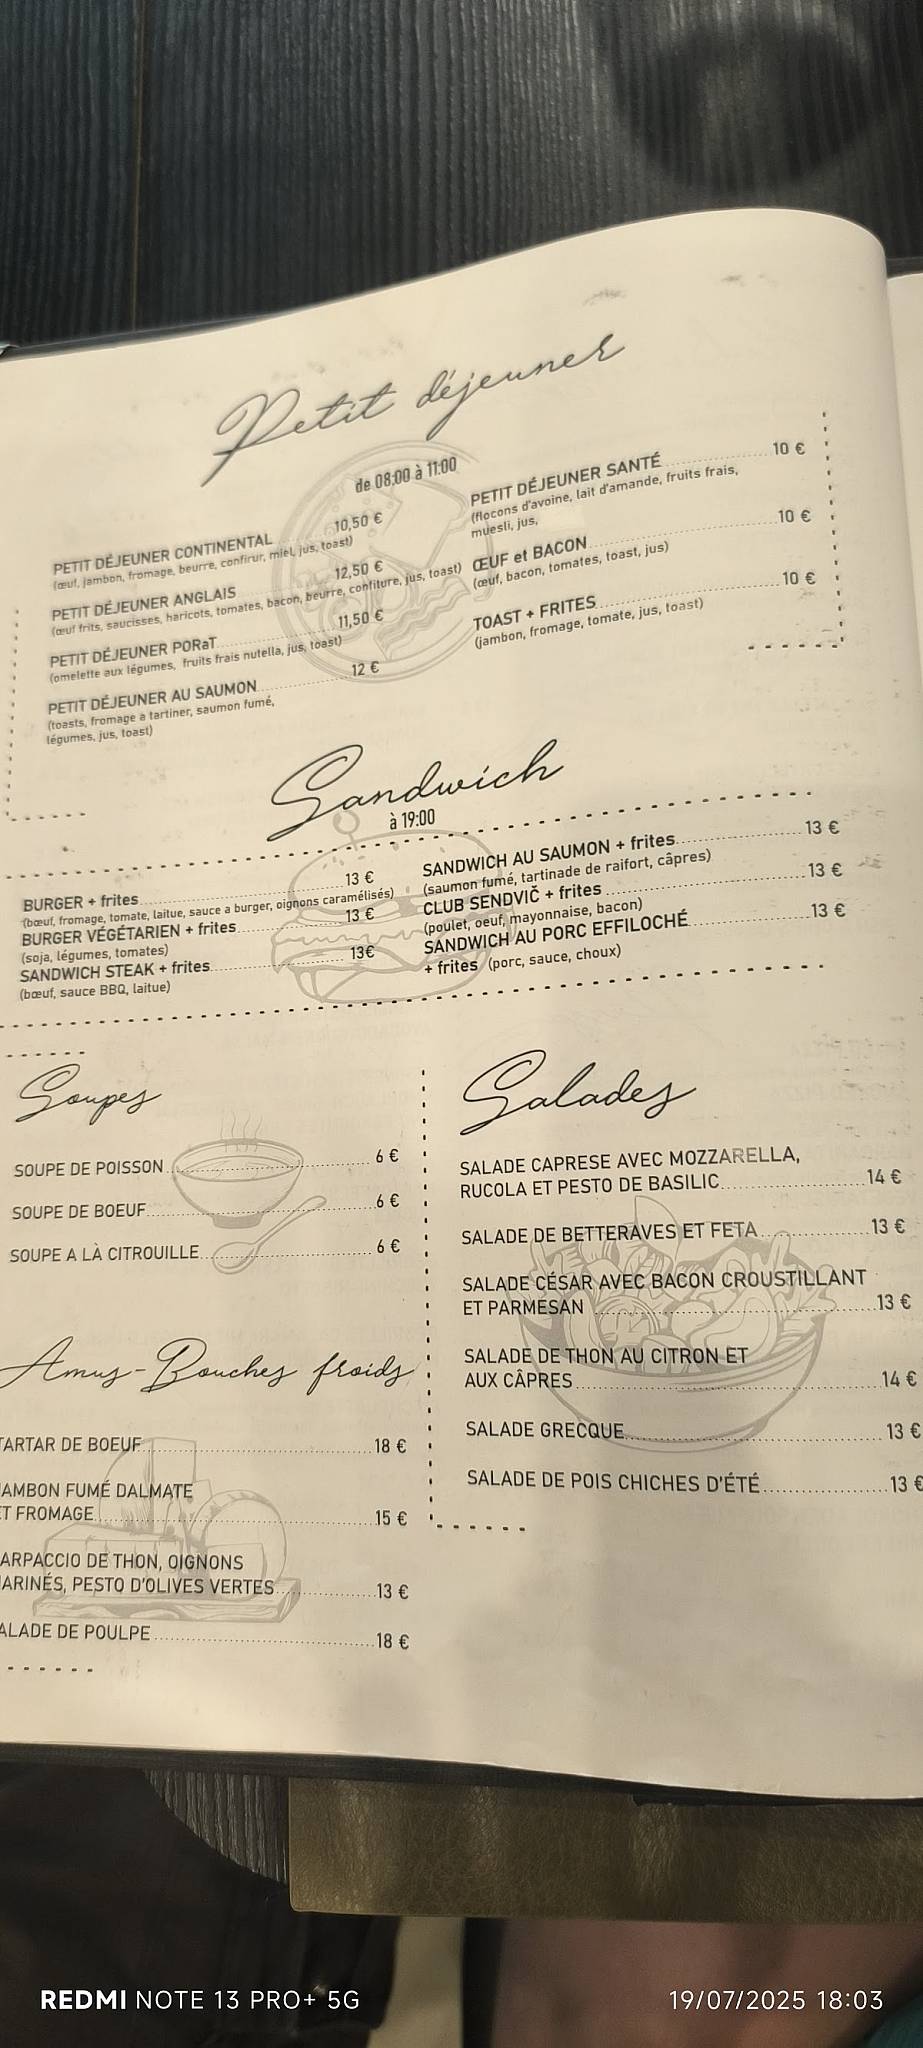 Petit déjeuner
de 08:00 à 11:00
PETIT DÉJEUNER CONTINENTAL 10,50 €
(œuf, jambon, fromage, beurre, confirur, miel, jus, toast)
PETIT DÉJEUNER ANGLAIS 12,50 €
(œuf frits, saucisses, haricots, tomates, bacon, beurre, confiture, jus, toast)
PETIT DÉJEUNER PORaT 11,50 €
(omelette aux légumes, fruits frais nutella, jus, toast)
PETIT DÉJEUNER AU SAUMON 12 €
(toasts, fromage a tartiner, saumon fumé,
légumes, jus, toast)
PETIT DÉJEUNER SANTÉ 10 €
(flocons d'avoine, lait d'amande, fruits frais,
muesli, jus,
ŒUF et BACON 10 €
(œuf, bacon, tomates, toast, jus)
TOAST + FRITES 10 €
(jambon, fromage, tomate, jus, toast)
Sandwich
à 19:00
BURGER + frites 13 €
(bœuf, fromage, tomate, laitue, sauce a burger, oignons caramélisés)
BURGER VÉGÉTARIEN + frites 13 €
(soja, légumes, tomates)
SANDWICH STEAK + frites 13€
(bœuf, sauce BBQ, laitue)
SANDWICH AU SAUMON + frites 13 €
(saumon fumé, tartinade de raifort, câpres)
CLUB SENDVIČ + frites 13 €
(poulet, oeuf, mayonnaise, bacon)
SANDWICH AU PORC EFFILOCHÉ 13 €
+ frites (porc, sauce, choux)
Soupes
SOUPE DE POISSON 6 €
SOUPE DE BOEUF 6 €
SOUPE A LÀ CITROUILLE 6 €
Amus-Bouches froids
TARTAR DE BOEUF 18 €
AMBON FUMÉ DALMATE
ET FROMAGE 15 €
ARPACCIO DE THON, OIGNONS
ARINÉS, PESTO D'OLIVES VERTES 13 €
ALADE DE POULPE 18 €
Salades
SALADE CAPRESE AVEC MOZZARELLA,
RUCOLA ET PESTO DE BASILIC 14 €
SALADE DE BETTERAVES ET FETA 13 €
SALADE CÉSAR AVEC BACON CROUSTILLANT
ET PARMESAN 13 €
SALADE DE THON AU CITRON ET
AUX CÂPRES 14 €
SALADE GRECQUE 13 €
SALADE DE POIS CHICHES D'ÉTÉ 13 €
REDMI NOTE 13 PRO+ 5G 19/07/2025 18:03